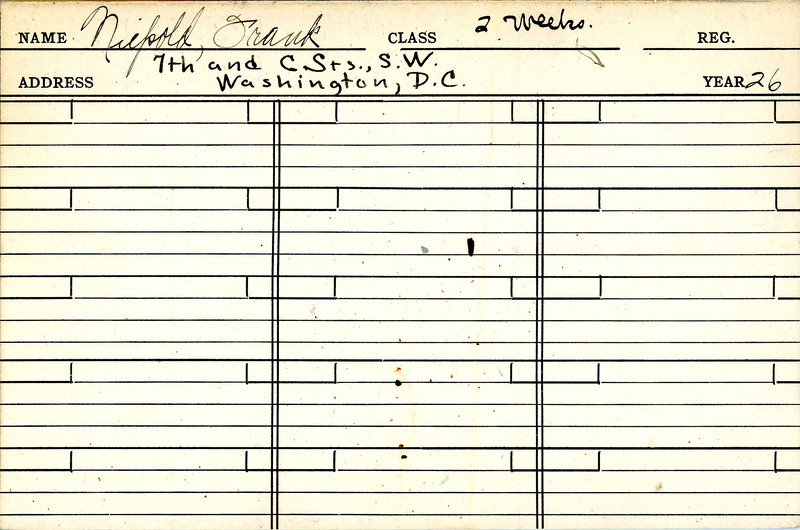 NAME Niepold, Frank CLASS 2 Weeks. REG.
7th and C Sts., S.W.
ADDRESS Washington, D.C. YEAR 26